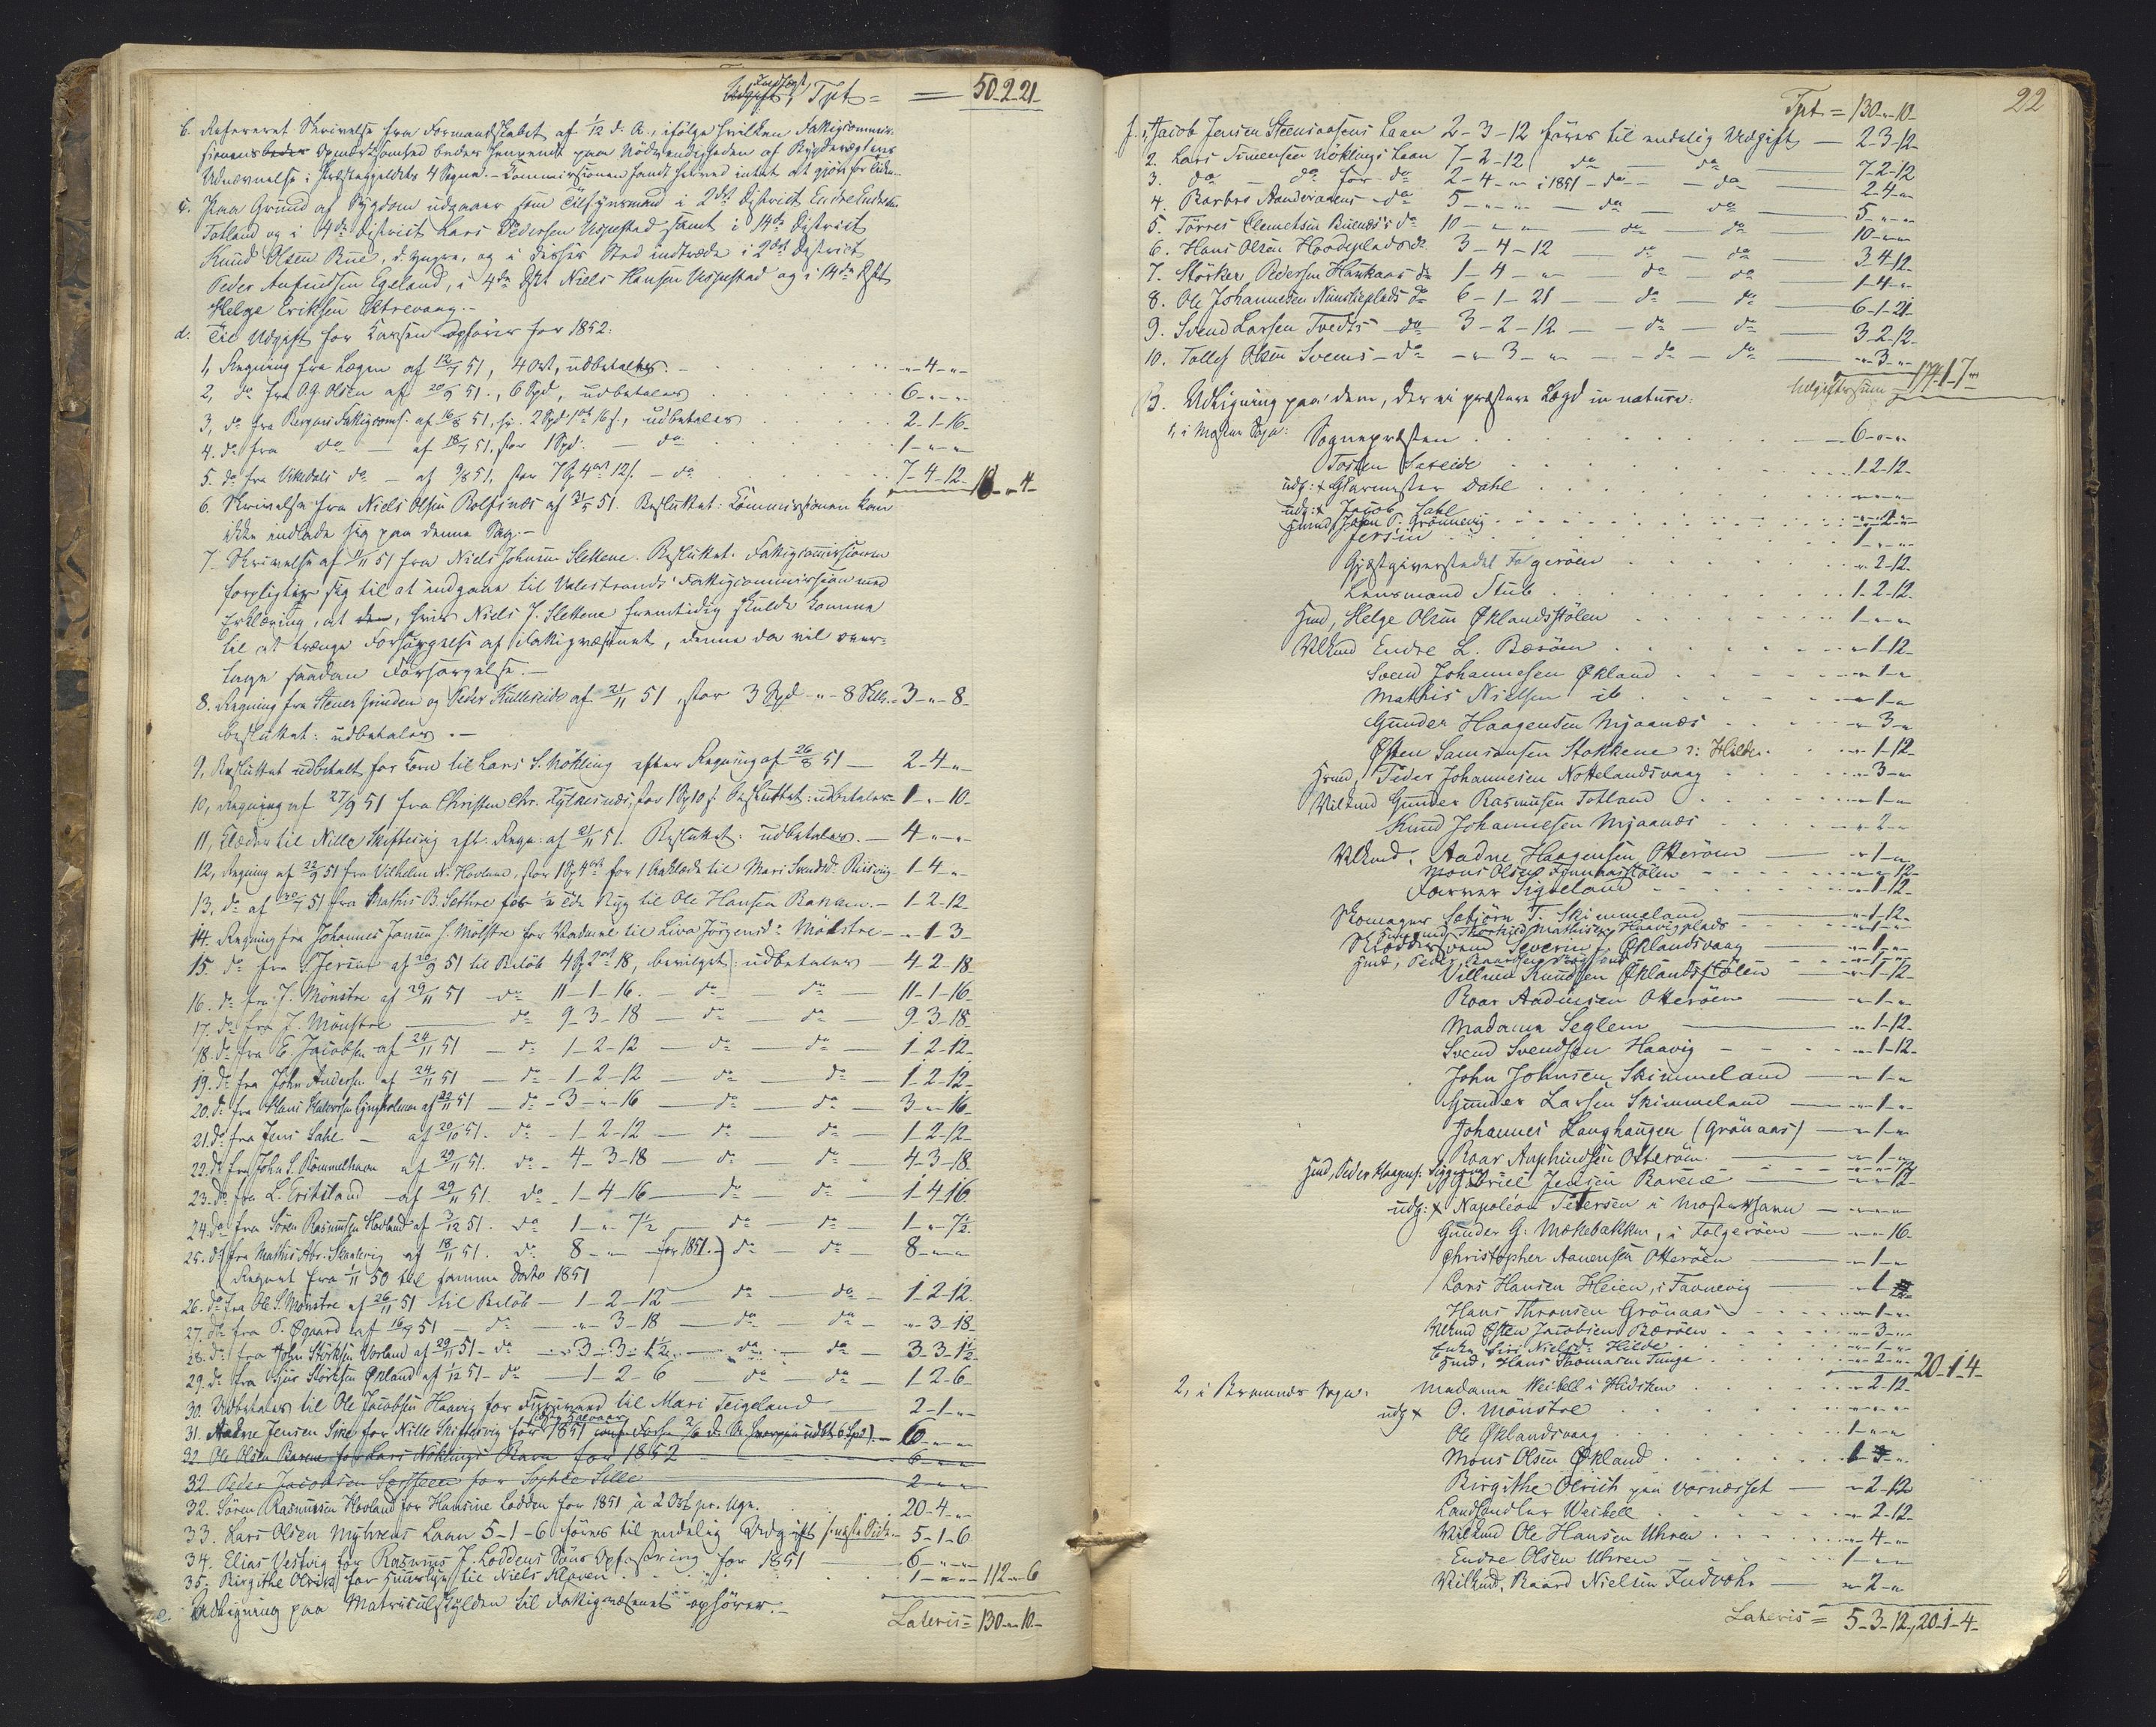 Indtægt, Tpt = 50-2-21-
b. Refereret Skrivelse fra Formandskabet af 1/12 d. A., ifølge hvilken Fattigcommis-
sionens Opmærksomhed bedes henvendt paa Nödvendigheden af Bygdevægtens
Udnævnelse i Præstegjeldets 4 Sogne. - Commissionen fandt herved intet at gjöre for Tiden.-
c. Paa Grund af Sygdom udgaaer som Tilsynsmand i 2det District Endre Endresen
Totland og i 4de District Lars Pedersen Uspestad samt i 14de District
Knud Olsen Bue, d. yngre, og i disses Sted indtræde i 2det District
Peder Anfindsen Egeland, i 4de Dstt Niels Hansen Uspestad og i 14de Dstt
Helge Eriksen Østrevaag.-
d. Til Udgift for Cassen opföres for 1852:
1, Regning fra Lægen af 12/7 51, 4 Ort, udbetales. - "-4-"-
2, do fra O. G. Olsen af 20/9 51., 6 Spd, udbetales 6-"-"-
3, do fra Bergens Fattigcoms. af 16/8 51, hr. 2 Spd 1 ort 16 s., udbetales 2-1-16-
4. do fra do - af 18/7 51, stor 1 Spd. - do 1-"-"
5. do fra Vikedals do - af 9/8 51, stor 7 Sp 4 ort 12 s. - do 7-4-12- 18-"-4-
6. Skrivelse fra Niels Olsen Rolfsnes af 31/5 51. Besluttet: Commissionen kan
ikke indlade sig paa denne Sag.-
7. Skrivelse af 1/11 51 fra Niels Johnsen Slettene. Besluttet. Fattigcommissionen
forpligter sig til at indgaae til Valestrands Fattigcommission med
Erklæring, at , hvis Niels J. Slettene fremtidig skulde komme
til at trænge Forsörgelse af Fattigvæsenet, denne da vil over-
tage saadan Forsorgelse.-
8. Regning fra Stener Grinden og Peder Kulleseide af 21/11 51, stor 3 Spd-"-8 Skill.= 3-"-8-
besluttet: udbetales.-
9. Besluttet udbetalt for Korn til Lars S. Nökling efter Regning af 26/8 51 - 2-4-"-
10, Regning af 27/9 51 fra Christen Chr. Fylkesnes, stor 1 Sp 10 s. Besluttet: udbetales - 1-"-10-
11, Klæder til Nille Skiftesvig eft. Regn: af 21/11 51. Besluttet: udbetales.- 4-"-"
12, Regning af 22/9 51 fra Vilhelm N. Hovland, stor 1 Sp 4 ort for 1 Aaklæde til Mari Svendsd. Risvig - 1-4-"
13, do af 20/7 51 fra Mathis B. Sethre for 1/2 Tde Byg til Ole Hansen Baxeen.- 1-2-12
14. Regning fra Johannes Jansen h. Mölstre for Vadmel til Liva Jörgensd: Mölstre - "-1-3-
15. do fra S. Jersin af 20/9 51 til Belöb 4 Sp 2 ort 18, bevilget: udbetales - 4-2-18
16. do fra J. Mönstre af 29/11 51 - do 11-1-16. - do - do - 11-1-16
17. do fra J. Mönstre do 9-3-18 - do - do - 9-3-18
18. do fra E. Jacobsen af 24/11 51 - do 1-2-12 - do - do - 1-2-12-
19. do fra John Andersen af 24/11 51 - do - 1-2-12 - do - do - 1-2-12-
20. do fra Hans Halvorsen Lyngholmen af 22/11 51 - do - 3-"-16 - do - do - 3-"-16
21. do fra Jens Sahl - af 20/10 51. do - 1-2-12 - do - do - 1-2-12
22. do fra John S. Römmelhavn af 29/11 51. do - 4-3-18 - do - do - 4-3-18
23. do fra L. Eritsland - af 29/11 51. do - 1-4-16 - do - do - 1-4-16
24. do fra Sören Rasmussen Hovland af 3/12 51. do 1-"-7½ - do - do - 1-"-7½
25. do fra Mathis Abr. Skaalevig af 18/11 51. do 8-"-" for 1851.) do - do - 8-"-"
Regnet fra 1/11 50 til samme Dato 1851
26. do fra Ole S. Mönstre af 26/11 51 til Belöb - 1-2-12 - do - do - 1-2-12
27. do fra T. Øgaard af 16/9 51 - do - "-3-18 - do - do - "-3-18
28. do fra John Störksen Vorland af 29/11 51 - do - 3-3-1½ - do - do - 3-3-1½
29. do fra Sjur Störksen Økland af 1/12 51 - do - 1-2-6 - do - do - 1-2-6-
30. Udbetales til Ole Jacobsen Haavig for Huusrum til Mari Teigeland 2-1-"
31. Aadne Jensen Sire for Nille Skiftesvig for 1851 - 6-"-"
32. Ole Olsen Baxeen for Lars Nöklings Barn for 1852 6-"-"
32. Peder Jacobsen for Sophie Lille 2-"-"
32. Sören Rasmussen Hovland for Hansine Lodden for 1851 à 2 Ort pr. Uge. 20-4-"
33. Lars Olsen Myhrens Laan 5-1-6 föres til endelig Udgift 5-1-6
34. Elias Vestvig for Rasmus J. Loddens Söns Opfostring for 1851 6-"-"
35. Birgithe Olrich for Huuslye til Niels Kloven 1-"-" 112-"-6
e. Udligning paa Matriculskylden til Fattigvæsenet ophörer.-
Lateris = 130-"-10-
22
Tpt = 130-"-10-
f. 1, Jacob Jensen Steensaasens Laan 2-3-12 föres til endelig Udgift - 2-3-12
2. Lars Simensen Nöklings Laan 7-2-12 do - do 7-2-12
3. do - do for do 2-4-" i 1851 - do - do 2-4-"
4. Barbro Aandevanens - do 5-"-" do - do 5-"-"
5. Törres Clemetsen Buenes's do 10-"-" - do - do 10-"-"
6. Hans Olsen Hoodeplads do 3-4-12 - do - do 3-4-12
7. Störker Pedersen Haukaas do 1-4-" do - do 1-4-"
8. Ole Johannesen Nimslieplads do 6-1-21 - do - do 6-1-21
9. Svend Larsen Tvedts - do - 3-2-12 - do - do 3-2-12
10. Tollef Olsen Sveens - do - "-3-" - do - do "-3-"
Udgiftssum = 174-1-7
B. Udligning paa dem, der ei præstere Lægd in natura:
1, i Moster Sogn: Sognepræsten 6-"-"
Torsten Sateide 1-2-12
udg: x Glarmester Dahl "-"-"
udg: x Jacob Sahl
Huusmd, John T. Grönnevig "-2-"
Jersin 1-"-"
Gjæstgiverstedet Folgeröen "-2-12
Lensmand Stub 1-2-12
Hmd, Helge Olsen Øklandsstölen 1-"-"
Vilkmd Endre L. Boröen "-1-12
Svend Johannesen Økland "-1-"
Mathis Nielsen ib "-1-"
Gunder Haagensen Mjaanæs "-3-"
Østen Samsonsen Stokkene v: Hilde. "-1-12
Hmd, Peder Johannesen Nottelandsvaag "-3-"
Vilkmd Gunder Rasmussen Totland "-1-"
Knud Johannesen Mjaanæs "-2-"
Vilkmd. Aadne Haagensen Otteröen "-1-"
Mons Olsen "-"-12
Farver Siqveland "-1-12
Skomager Sebjörn T. Skimmeland "-1-12
Huusmd. Thorkild Mathisen Haavigplads "-1-"
Skrædder Severin J. Øklandsvaag "-1-"
Villum Knudsen Øklandsstölen "-1-12
Roar Aadnesen Otteröen "-1-"
Madame Seglem "-1-12
Svend Svendsen Haavig "-1-12
John Johnsen Skimmeland "-1-"
Gunder Larsen Skimmeland "-1-"
Johannes Langhaugen (Grönaas) "-1-"
Roar Anfindsen Otteröen "-1-"
Hmd, Peder Haagens. Siggervaag "-"-12
Gabriel Jensen Baxeie "-"-12
udg: x Napoleon Petersen i Mosterhavn "-"-"
Gunder G. Mækebakken, i Folgeröen "-"-16
Christopher Aanensen Otteröen "-1-"
Lars Hansen Heien, i Favnevig "-1
Hans Thronsen Grönaas "-1-"
Vilkmd Østen Jacobsen Boröen "-3-"
Enke Siri Nielsdr Hilde "-1-"
Hmd, Hans Thomasen Tunge "-2-" 20-1-4-
2, i Bremnes Sogn: Madame Weibell i Hidsken "-2-12
udg x O. Mönstre "-"-"
Ole Øklandsvaag 1-"-"
Mons Olsen Økland 1-
Birgithe Olrich paa Vornesset "-2-12
Landhandler Weibell "-2-12
Vilkmd Ole Hansen Uhren "-4-"
Endre Olsen Uhren 1-"-"
Vilkmd. Baard Nielsen Indvohr "-2-"
Lateris = 5-3-12, 20-1-4-